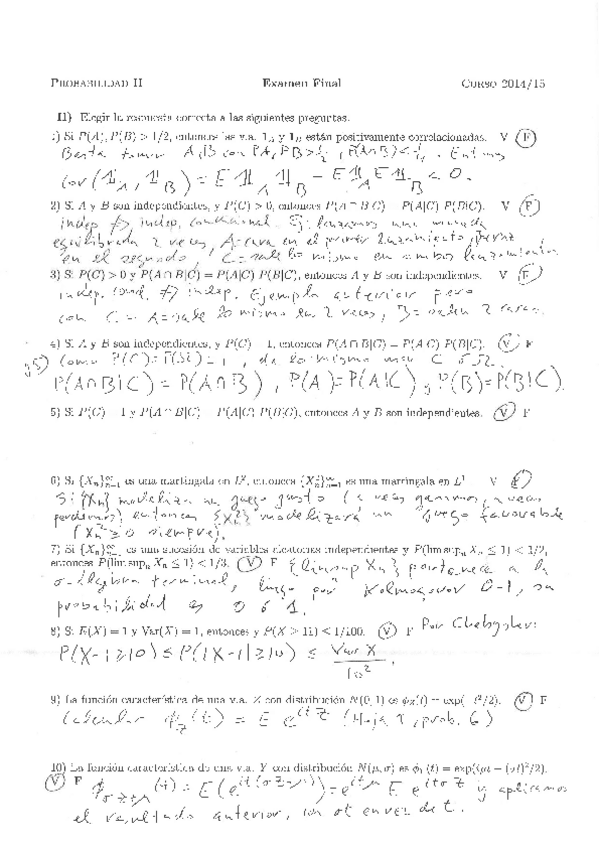 PROBABILIDAD II Examen Final CURSO 2014/15
II) Elegir la respuesta correcta a las siguientes preguntas.
1) Si P(A), P(B) > 1/2, entonces las v.a. 1_A y 1_B están positivamente correlacionadas. V F
Basta tomar A, B con PA, PB > ½, P(A∩B) < ¼. Entonces
Cov(1_A, 1_B) = E 1_A 1_B − E 1_A E 1_B < 0.
2) Si A y B son independientes, y P(C) > 0, entonces P(A ∩ B|C) = P(A|C) P(B|C). V F
indep ⇏ indep. condicional. Ej: lanzamos una moneda
equilibrada 2 veces, A = cara en el primer lanzamiento,
en el segundo, C = sale lo mismo en ambos lanzamientos
3) Si P(C) > 0 y P(A ∩ B|C) = P(A|C) P(B|C), entonces A y B son independientes. V F
indep. cond. ⇏ indep. Ejemplo anterior pero
con C = A = sale lo mismo en 2 veces, B = salen 2 caras.
4) Si A y B son independientes, y P(C) = 1, entonces P(A ∩ B|C) = P(A|C) P(B|C). V F
y 5) Como P(C) = P(Ω) = 1, da lo mismo usar C ó Ω.
P(A∩B|C) = P(A∩B), P(A) = P(A|C), P(B) = P(B|C).
5) Si P(C) = 1 y P(A ∩ B|C) = P(A|C) P(B|C), entonces A y B son independientes. V F
6) Si {X_n}_{n=1}^∞ es una martingala en L², entonces {X_n²}_{n=1}^∞ es una martingala en L¹ V F
Si {X_n} modeliza un juego justo (a veces ganamos, a veces
perdemos) entonces {X_n²} modelizará un juego favorable
(X_n² ≥ 0 siempre).
7) Si {X_n}_{n=1}^∞ es una sucesión de variables aleatorias independientes y P(lim sup_n X_n ≤ 1) < 1/2,
entonces P(lim sup_n X_n ≤ 1) < 1/3. V F {limsup X_n} pertenece a la
σ-álgebra terminal, luego por Kolmogorov 0-1, su
probabilidad es 0 ó 1.
8) Si E(X) = 1 y Var(X) = 1, entonces y P(X ≥ 11) < 1/100. V F Por Chebyshev:
P(X−1≥10) ≤ P(|X−1|≥10) ≤ Var X / 10².
9) La función característica de una v.a. Z con distribución N(0, 1) es φ_Z(t) = exp(−t²/2). V F
Calcular φ_Z(t) = E e^{itZ} (Hoja 1, prob. 6)
10) La función característica de una v.a. Y con distribución N(μ, σ) es φ_Y(t) = exp(iμt − (σt)²/2).
V F φ_{σZ+μ}(t) = E(e^{it(σZ+μ)}) = e^{itμ} E e^{itσZ} y aplicamos
el resultado anterior, con σt en vez de t.